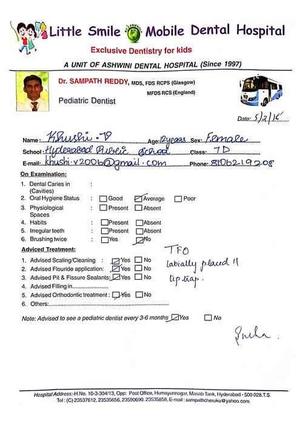 Little Smile Mobile Dental Hospital
Exclusive Dentistry for kids
A UNIT OF ASHWINI DENTAL HOSPITAL (Since 1997)
Dr. SAMPATH REDDY, MDS, FDS RCPS (Glasgow)
MFDS RCS (England)
Pediatric Dentist
Date: 5/2/15
Name: Khushi. V Age: 12years Sex: Female
School: Hyderabad Public School Class: 7D
E-mail: khushi.v2006@gmail.com Phone:
On Examination:
1. Dental Caries in :
(Cavities)
2. Oral Hygiene Status : Good Average Poor
3. Physiological : Present Absent
Spaces
4. Habits : Present Absent
5. Irregular teeth : Present Absent
6. Brushing twice : Yes No
Adviced Treatment:
1. Advised Scaling/Cleaning : Yes No
2. Advised Flouride application: Yes No
3. Advised Pit & Fissure Sealants: Yes No
4. Advised Filling in
5. Advised Orthodontic treatment : Yes No
6. Others:
TFO
labially placed 11
lip trap.
Note: Advised to see a pediatric dentist every 3-6 months Yes No
Hospital Address: H.No. 10-3-304/13, Opp: Post Office, Humayunnagar, Masab Tank, Hyderabad - 500 028.T.S.
Tel: (C) 23537612, 23535656, 23590690, 23535858, E-mail : sampathcheruku@yahoo.com